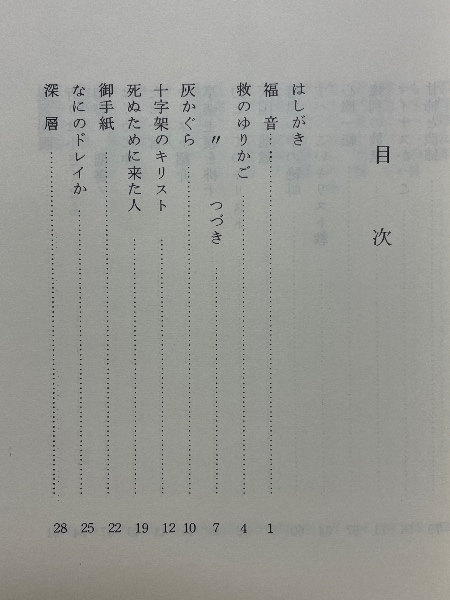 目次
はしがき
福音……1
救のゆりかご……4
〃 つづき……7
灰かぐら……10
十字架のキリスト……12
死ぬために来た人……19
御手紙……22
なにのドレイか……25
深層……28